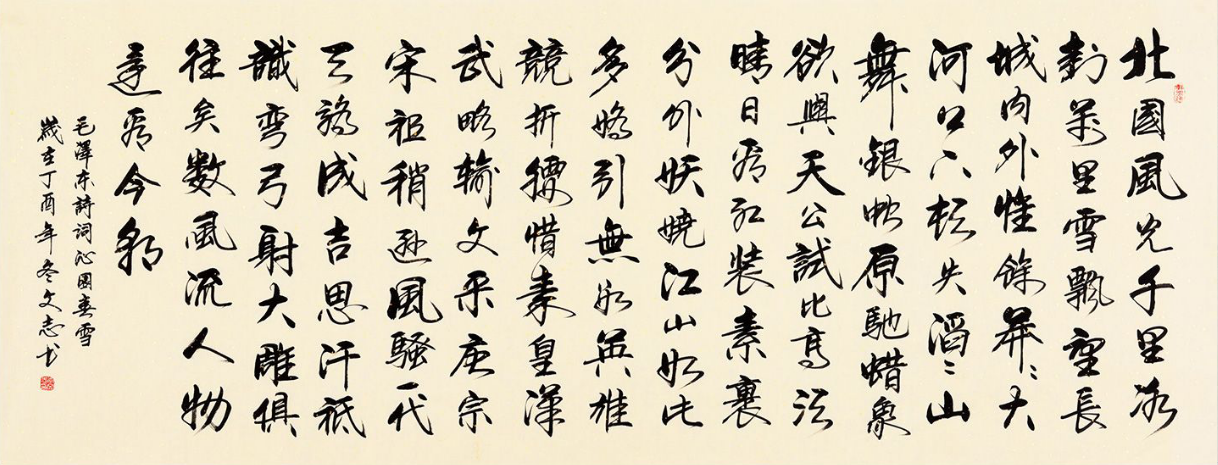 北國風光千里冰
封萬里雪飄望長
城内外惟餘莽〻大
河上下頓失滔〻山
舞銀蛇原馳蜡象
欲與天公試比高須
晴日看紅裝素裹
分外妖嬈江山如此
多嬌引無數英雄
競折腰惜秦皇漢
武略輸文采唐宗
宋祖稍遜風騷一代
天驕成吉思汗祇
識彎弓射大雕俱
往矣數風流人物
還看今朝
毛澤東詩詞沁園春雪
歲在丁酉年冬文志书